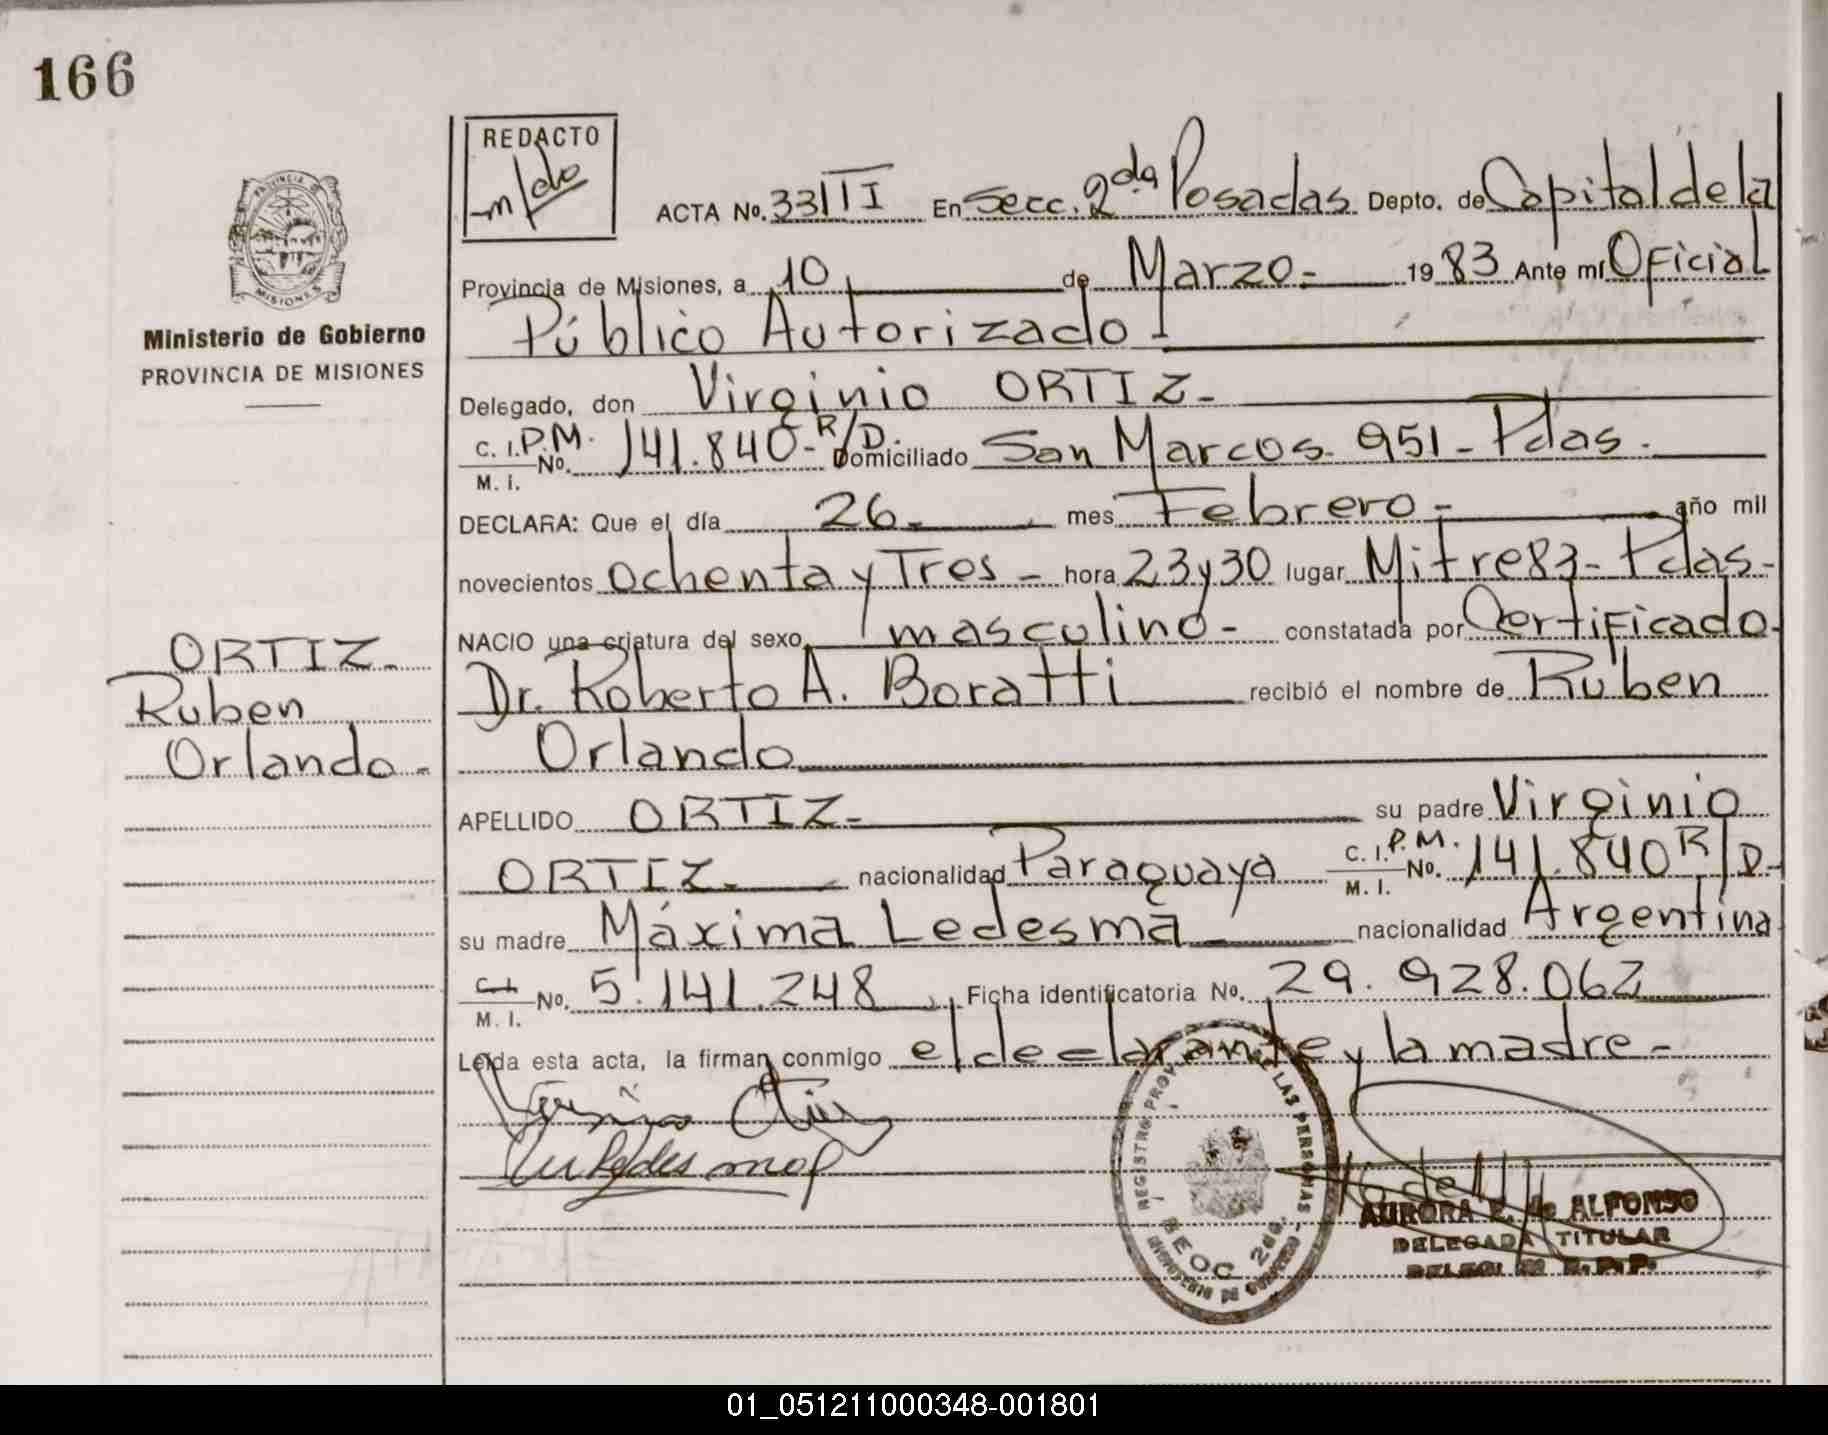 166
REDACTO
ACTA No. 331 TI En Secc. 2da Posadas Depto. de Capital de la
Provincia de Misiones, a 10 de Marzo - 1983 Ante mí Oficial
Público Autorizado -
Ministerio de Gobierno
PROVINCIA DE MISIONES
Delegado, don Virginio ORTIZ -
C. I. P.M. No. 141.840 - R/D. Domiciliado San Marcos - 951 - Pdas.
M. I.
DECLARA: Que el día 26 - mes Febrero - año mil
novecientos ochenta y Tres - hora 23 y 30 lugar Mitre 83 - Pdas -
NACIO una criatura del sexo masculino - constatada por Certificado
Dr. Roberto A. Boratti recibió el nombre de Ruben
Orlando
ORTIZ -
Ruben
Orlando -
APELLIDO ORTIZ - su padre Virginio
ORTIZ - nacionalidad Paraguaya C. I. P.M. No. 141.840 R/D -
M. I.
su madre Máxima Ledesma nacionalidad Argentina
C. I. No. 5.141.248 Ficha identificatoria No. 29.928.062
M. I.
Leída esta acta, la firman conmigo el declarante y la madre -
REGISTRO PROV. DE LAS PERSONAS
MINISTERIO DE GOBIERNO
SEOC 2da.
AURORA E. de ALFONSO
DELEGADA TITULAR
01_051211000348-001801